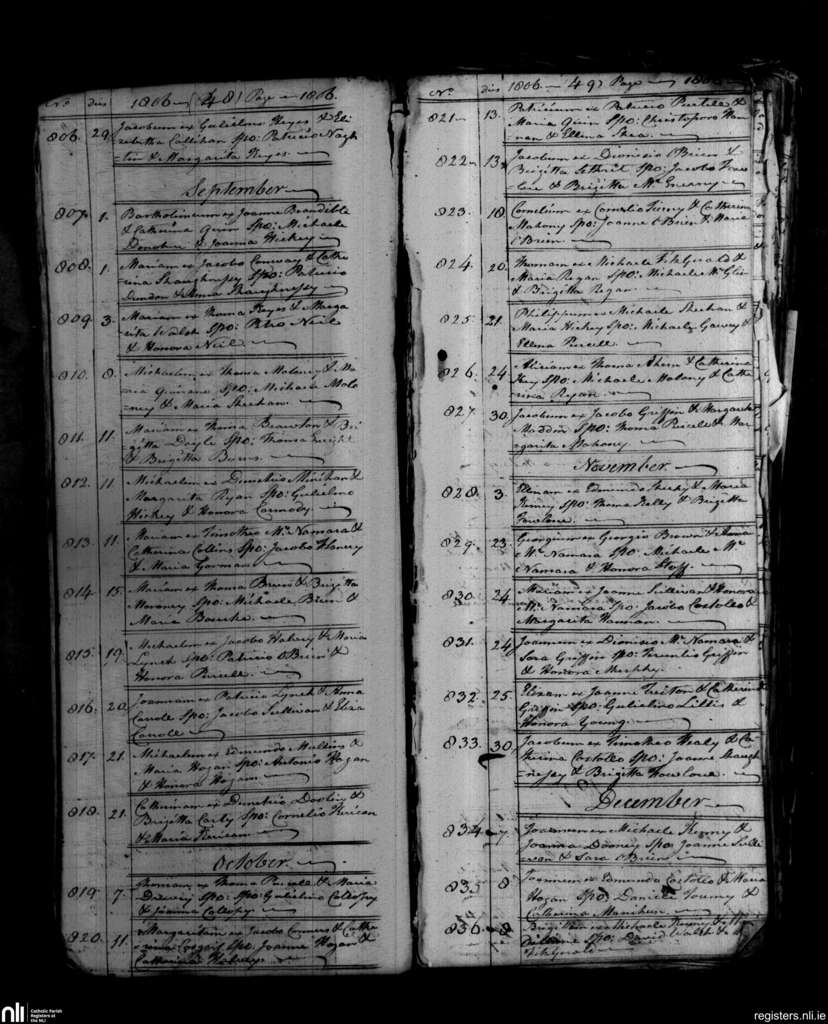 No dies 1806 (48) Page 1806.
806. 29. Jacobum ex Gulielmo Keyes & Eli
zabetha Callihan Spo: Patricio Nagh
ten & Margarita Keyes
September
807. 1. Bartholimeum ex Joanne
& Catherina Quin Spo: Michaele
Donohu & Joanna Hickey
808. 1. Mariam ex Jacobo Conway & Cathe
rina Shaughnessy Spo: Patricio
& Anna Shaughnessy
809 3. Mariam ex Thoma Keyes & Marga
rita Walsh Spo: Petro Neil
& Honora Neil
810. 8. Michaelem ex Thoma Molony & Ma
ria Spo: Michaele Molo
ney & Maria Sheehan
811. 11. Mariam ex Thoma & Bri
gitta Doyle Spo: Thoma
& Brigitta
812. 11 Michaelem ex Demetrio & 
Margarita Ryan Spo: Gulielmo
Hickey & Honora Carmody
813. 11. Mariam ex Timotheo McNamara &
Catherina Collins Spo: Jacobo
& Maria Gorman
814 15. Mariam ex Thoma & Brigitta
Moroney Spo: Michaele Brien &
Maria Bourke
815. 19. Michaelem ex Jacobo & Maria
Lynch Spo: Patricio OBrien &
Honora Purcell
816. 20. Joannam ex Patricio Lynch & Anna
Carrole Spo: Jacobo Sullivan & Eliza
Carroll
817. 21. Michaelem ex Edmundo Mullins &
Maria Hogan Spo: Antonio Hogan
& Honora Hogan
818. 21. Catherinam ex Demetrio &
Brigitta Spo: Cornelio
& Maria
October
819. 7. Thomam ex Thoma Purcell & Maria
Spo: Gulielmo
& Joanna
820. 11. Margaritam ex Jacobo & Cathe
rina Spo: Joanne Hogan &
Catharina
No dies 1806 (49) Page
821 13. Patricium ex Patricio &
Maria Quin Spo: Christophoro Han
nan & Ellena Shea
822 13. Jacobum ex Dionisio OBrien &
Brigitta Spo: Jacobo
& Brigitta
823. 18. Cornelium ex Cornelio & Catherina
Mahony Spo: Joanne OBrien & Maria
OBrien
824. 20. Thomam ex Michaele FitzGerald &
Maria Regan Spo: Michaele
& Brigitta Regan
825. 21. Philippum ex Michaele Sheehan &
Maria Hickey Spo: Michaele &
Ellena Purcell
826. 24. ex Thoma Ahern & Catherina
Spo: Michaele Molony & Cathe
rina Ryan
827. 30. Jacobum ex Jacobo Griffin & Margarita
Madden Spo: Thoma & Mar
garita Mahony
November
828. 3. Ellenam ex Edmundo Sheehy & Maria
Spo: Thoma Kelly & Brigitta
829. 23. Georgium ex Georgio Brown & Anna
McNamara Spo: Michaele Mc
Namara & Honora
830. 24. Mariam ex Joanne Sullivan & Honora
McNamara Spo: Jacobo Costello &
Margarita Hannan
831. 24. Joannem ex Dionisio McNamara &
Sara Griffin Spo: Griffin
& Honora Murphy
832. 25. Elizam ex Joanne & Catherina
Griffin Spo: Gulielmo Lillis &
Honora Young
833. 30. Jacobum ex Timotheo Healy & Ca
therina Costello Spo: Joanne Shaugh
nessy & Brigitta
December
834 7. Joannem ex Michaele &
Joanna Spo: Joanne Sulli
van & Sara OBrien
835 8 Joannem ex Edmundo Costello & Maria
Hogan Spo: Daniele &
Catherina
836 8 Brigittam ex Michaele
Spo: David Walsh &
FitzGerald
nli
Catholic Parish
Registers at
the NLI
registers.nli.ie